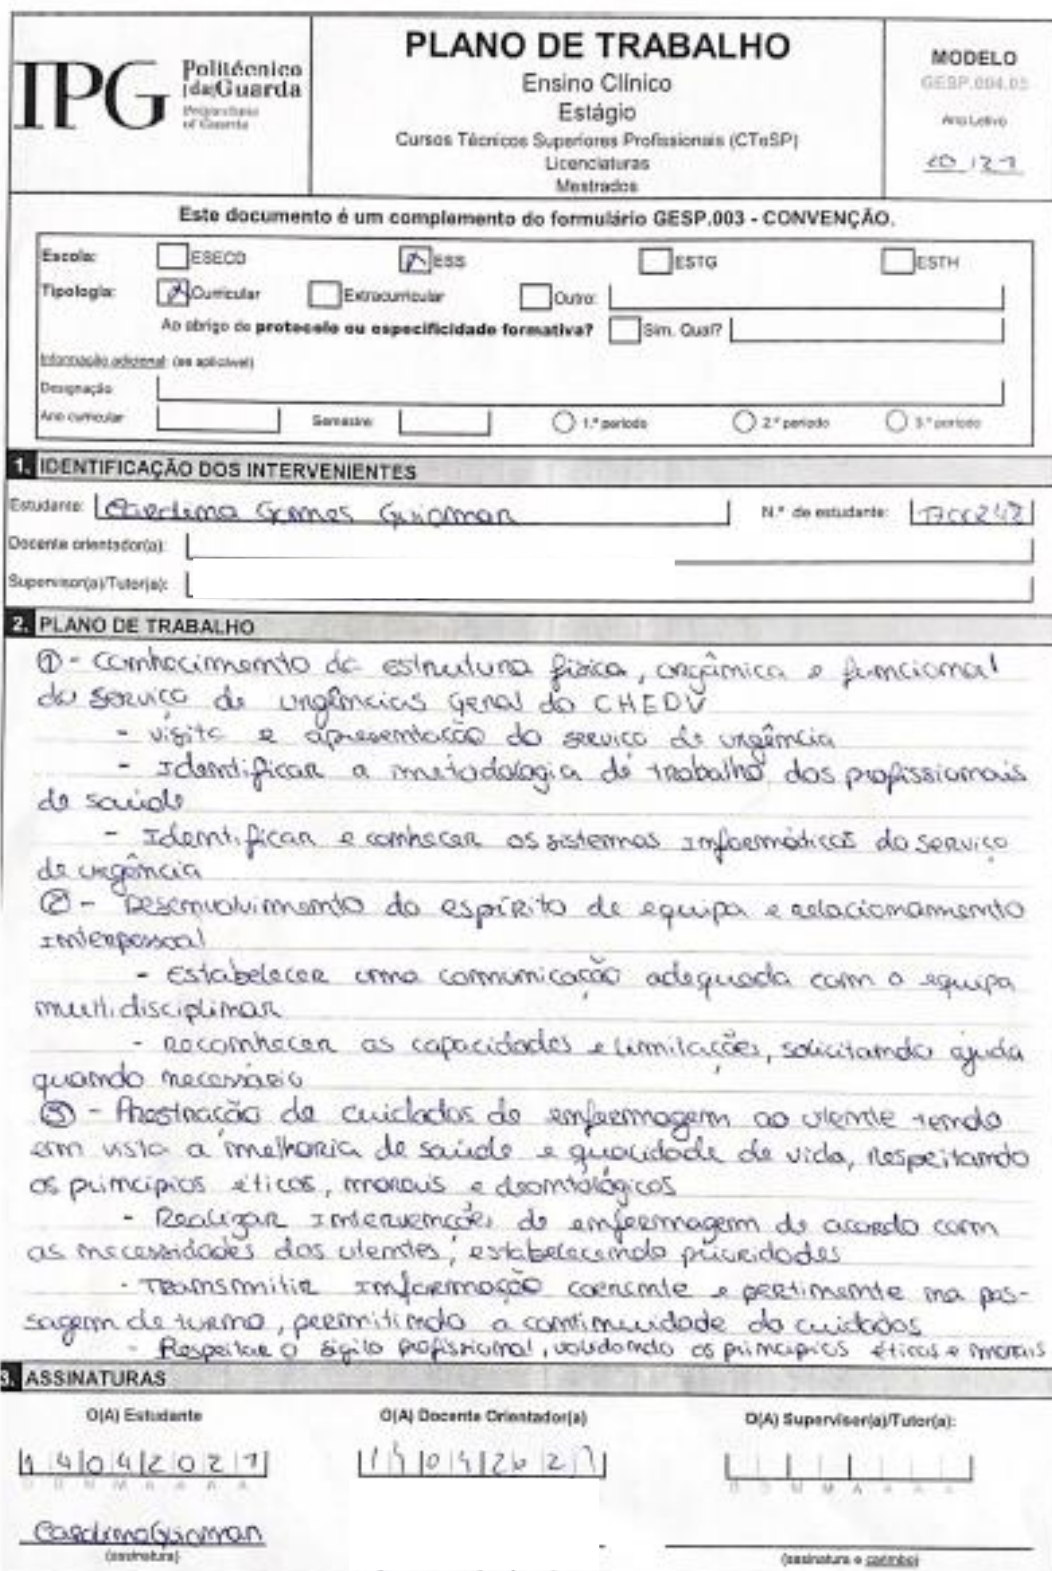 IPG Politécnico
da Guarda
Polytechnic
of Guarda
PLANO DE TRABALHO
Ensino Clínico
Estágio
Cursos Técnicos Superiores Profissionais (CTeSP)
Licenciaturas
Mestrados
MODELO
GESP.004.05
Ano Letivo
20 / 21
Este documento é um complemento do formulário GESP.003 - CONVENÇÃO.
Escola: ESECD ESS ESTG ESTH
Tipologia: Curricular Extracurricular Outro:
Ao abrigo de protocolo ou especificidade formativa? Sim. Qual?
Informação adicional: (se aplicável)
Designação
Ano curricular Semestre 1.º período 2.º período 3.º período
1. IDENTIFICAÇÃO DOS INTERVENIENTES
Estudante: Gomes Guiomar N.º de estudante:
Docente orientador(a):
Supervisor(a)/Tutor(a):
2. PLANO DE TRABALHO
① - Conhecimento da estrutura física, orgânica e funcional
do serviço de urgências geral do CHEDV
- visita e apresentação do serviço de urgência
- Identificar a metodologia de trabalho dos profissionais
de saúde
- Identificar e conhecer os sistemas informáticos do serviço
de urgência
② - Desenvolvimento do espírito de equipa e relacionamento
Interpessoal
- Estabelecer uma comunicação adequada com a equipa
multidisciplinar
- Reconhecer as capacidades e limitações, solicitando ajuda
quando necessário
③ - Prestração de cuidados de enfermagem ao utente tendo
em vista a melhoria de saúde e qualidade de vida, respeitando
os principios éticos, morais e deontológicos
- Realizar Intervenções de enfermagem de acordo com
as necessidades dos utentes, estabelecendo prioridades
- Transmitir Informação coerente e pertinente na pas-
sagem de turno, permitindo a continuidade de cuidados
- Respeitar o sigilo profissional, validando os principios éticos e morais
3. ASSINATURAS
O(A) Estudante O(A) Docente Orientador(a) O(A) Supervisor(a)/Tutor(a):
14042021 14042021
D D M M A A A A D D M M A A A A
Guiomar
(assinatura) (assinatura e carimbo)